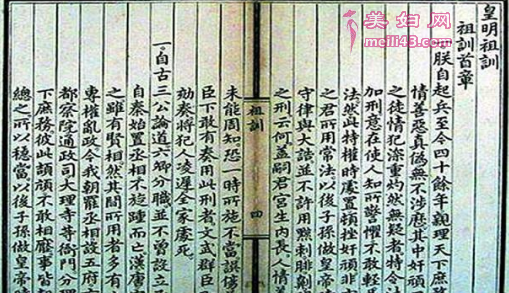 美妇网
meili43.com
皇明祖訓
祖訓首章
朕自起兵至今四十餘年親理天下庶
情善惡真偽無不涉歷其中奸頑
之徒情犯深重灼然無疑者特令
加刑意在使人知所警懼不敢輕
法然此特權時處置頓挫奸頑非
之君所用常法以後子孫做皇帝
守律與大誥並不許用黥刺剕劓
之刑云何蓋嗣君宮生內長人情善
祖訓
四
未能周知恐一時所施不當誤傷
臣下敢有奏用此刑者文武群臣
劾奏將犯人凌遲全家處死
一自古三公論道六卿分職並不曾設立
自秦始置丞相不旋踵而亡漢唐
之雖有賢相然其間所用者多有
專權亂政今我朝罷丞相設五府
都察院通政司大理寺等衙門分理
下庶務彼此頡頏不敢相壓事皆朝
總之所以穩當以後子孫做皇帝時